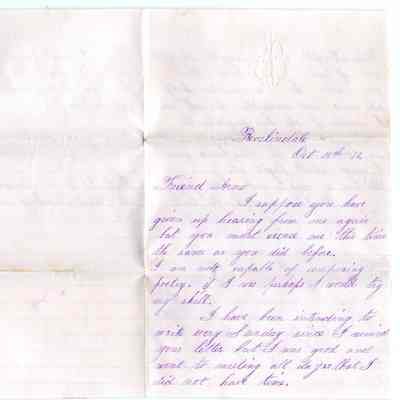 Roslindale
Oct 10th - 72
Friend
I suppose you have
given up hearing from me again
but you must excuse me this time
the same as you did before.
I am not capable of composing
poetry. if I was perhaps I would try
my skill.
I have been intending to
write every Sunday since I received
your letter but I was good and
went to meeting all day so that I
did not have time.